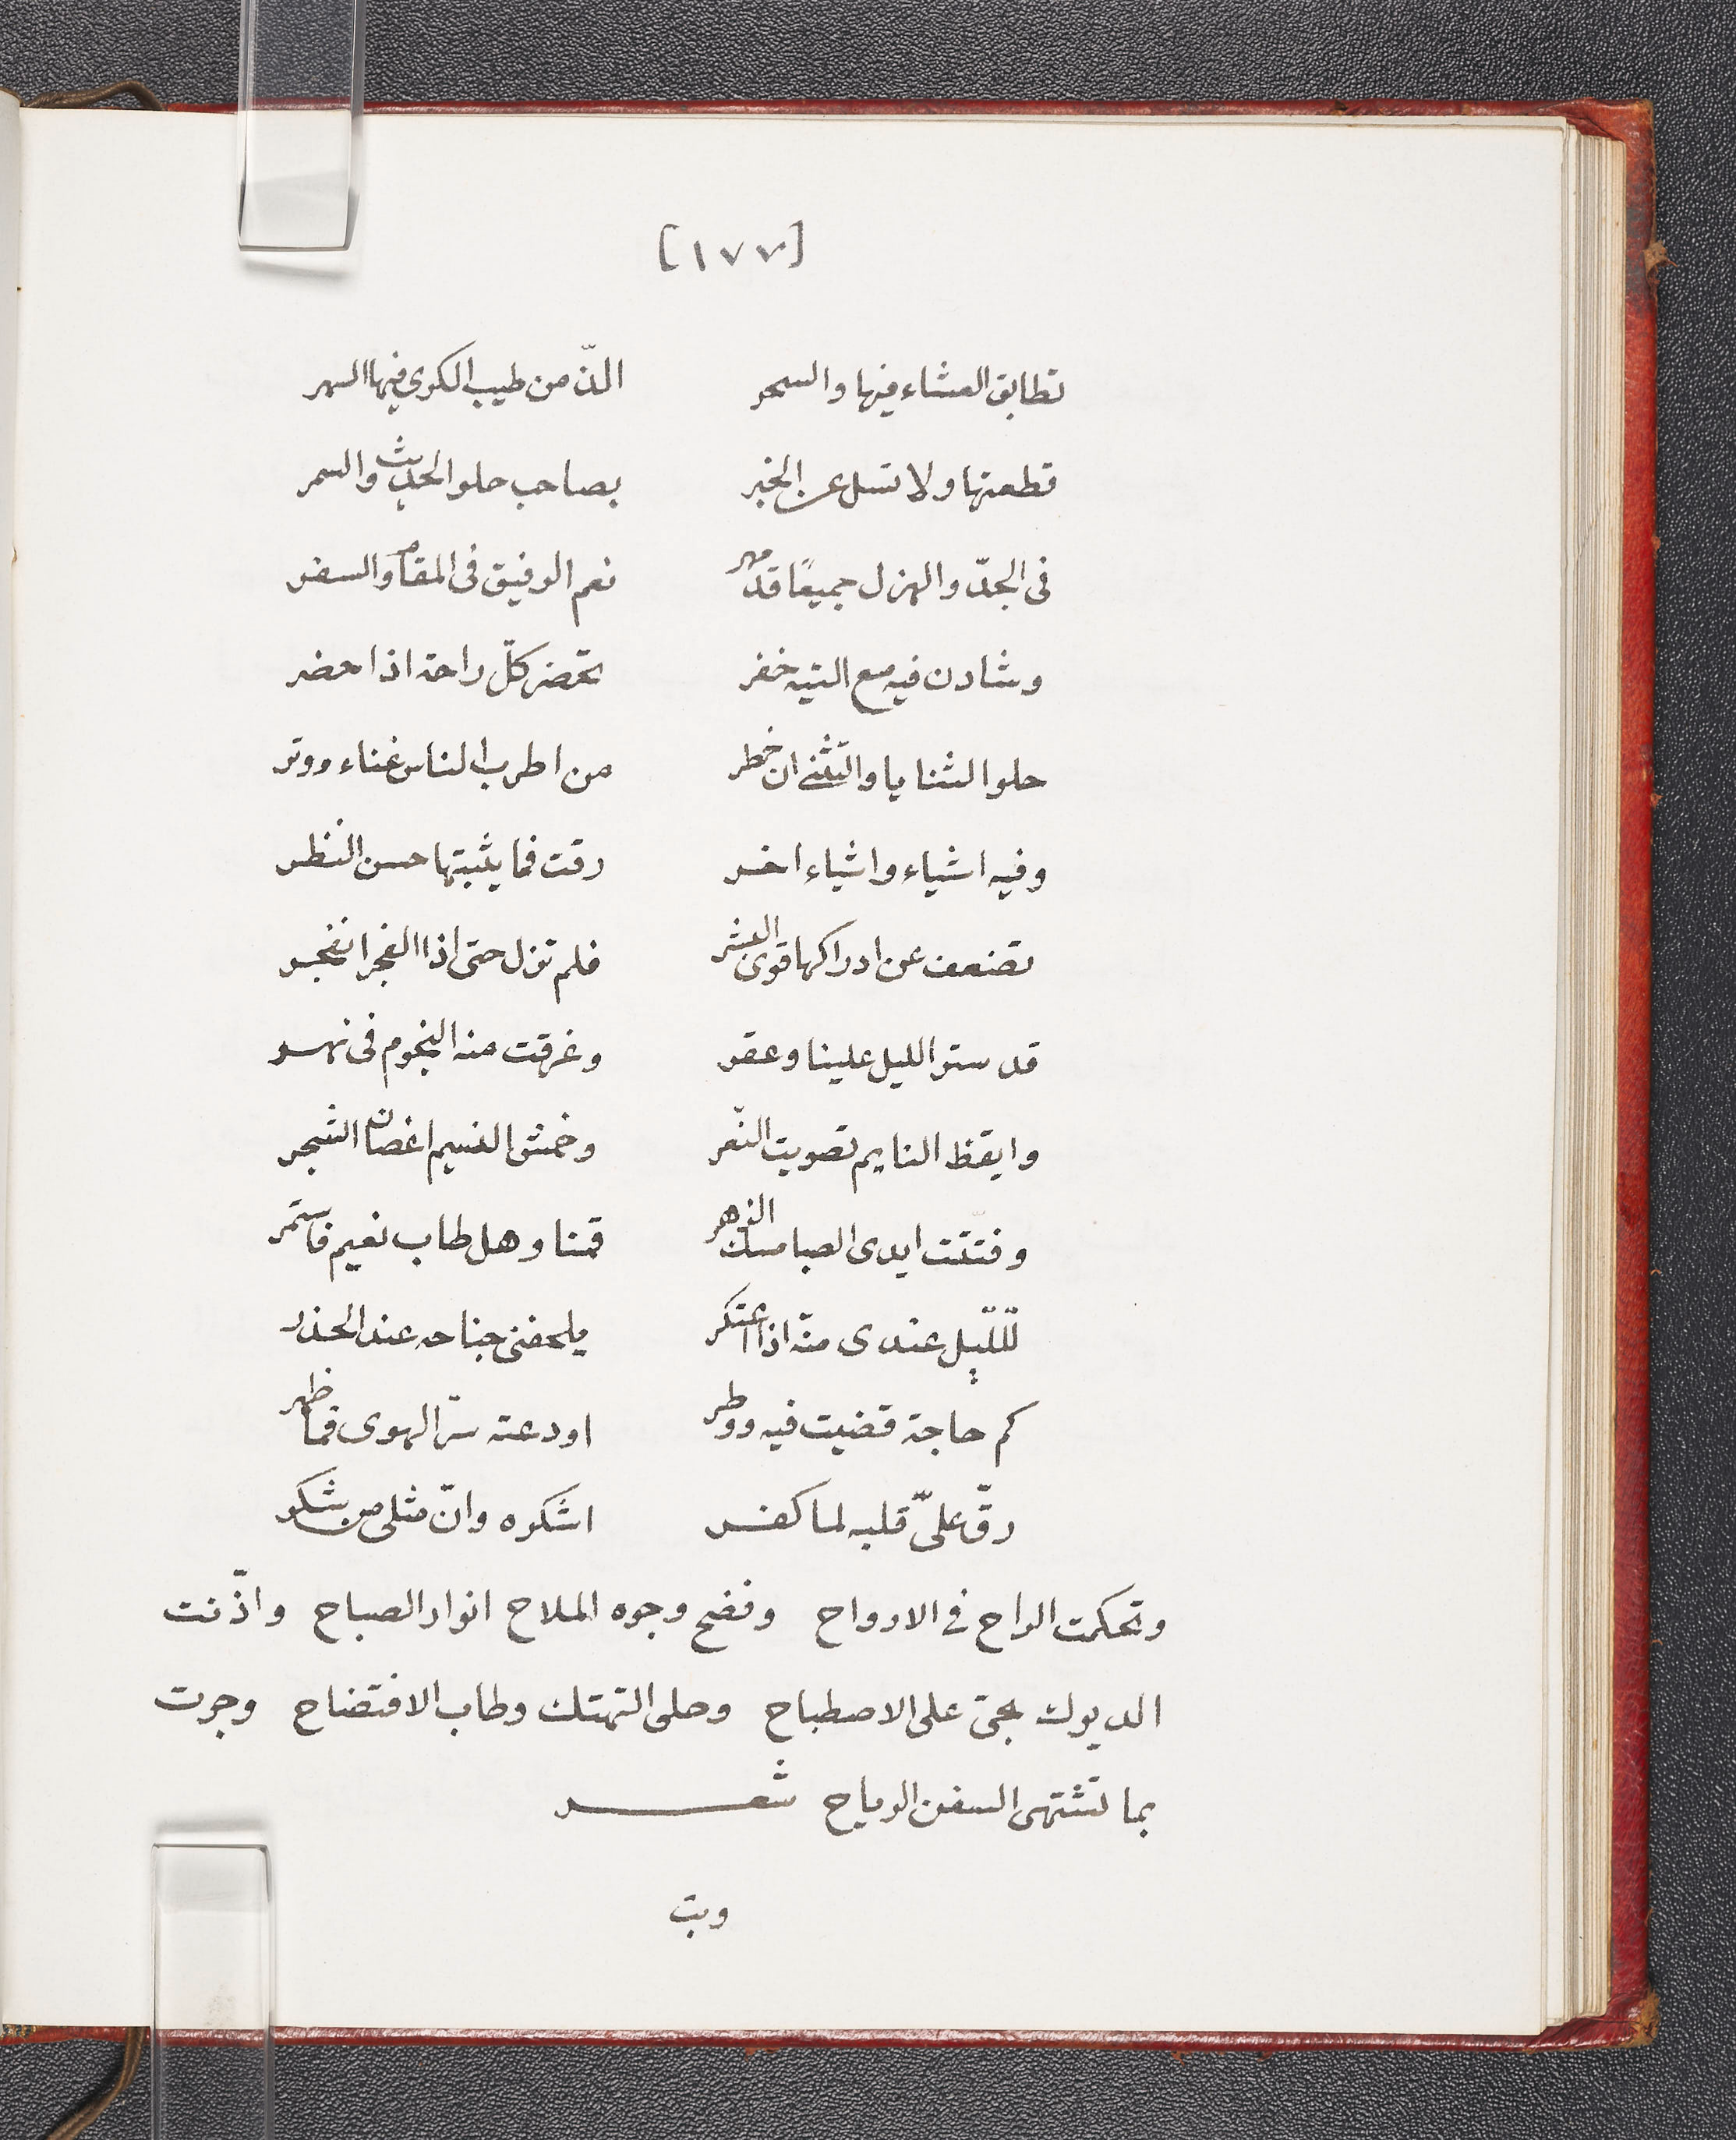 [١٧٧]
تطابق العشاء فيها والسحر الذّ من طيب الكرى فيها السهر
قطعتها ولا تسل عن الخبر بصاحب حلو الحديث والسمر
فى الجدّ والهزل جميعًا قد مهر نعم الرفيق فى المقام والسفر
وشادن فيه مع التيه خفر تحضر كلّ راحة اذا حضر
حلو الثنايا والتثنّى ان خطر من اطرب الناس غناء ووتر
وفيه اشياء واشياء اخر رقت فما يثبتها حسن النظر
تضعف عن ادراكها قوى البشر فلم تزل حتى اذا الفجر انفجر
قد ستر الليل علينا وعقر وغرقت منه النجوم فى نهر
وايقظ النايم تصويت النغر وخمش النسيم اغصان الشجر
وفتتت ايدى الصبا مسك الزهر قمنا وهل طاب نعيم فاستمر
للّيل عندى منّه اذا اعتكر يلحفنى جناحه عند الحذر
كم حاجة قضيت فيه ووطر اودعته سرّ الهوى فما ظهر
رقّ علىّ قلبه لما كفر اشكره وانّ مثلى من شكر
وتحكمت الراح فى الارواح وفضح وجوه الملاح انوار الصباح واذّنت
الديوك بحىّ على الاصطباح وحلى التهتك وطاب الافتضاح وجرت
بما تشتهى السفن الرياح شعر
وبت